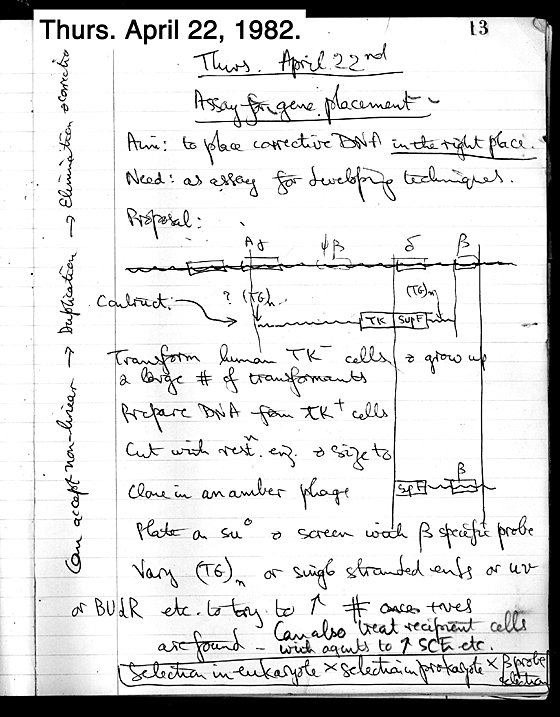 Thurs. April 22, 1982.
13
Thurs. April 22nd
Assay for gene placement
Aim: to place corrective DNA in the right place.
Need: as assay for developing techniques.
Proposal:
Aγ ψβ δ β
Construct: ? (TG)n (TG)n
TK SupF
Transform human TK⁻ cells & grow up
a large # of transformants
Prepare DNA from TK⁺ cells
Cut with restn. enz. & size to
β
Clone in an amber phage SupF
Plate on su° & screen with β specific probe
Vary (TG)n or single stranded ends or uv
or BUdR etc. to try to ↑ # once +ves
are found – Can also treat recipient cells
with agents to ↑ SCE etc.
Selection in eukaryote × selection in prokaryote × β probe
selection
Can accept non-linear → Duplication → Elimination & correction